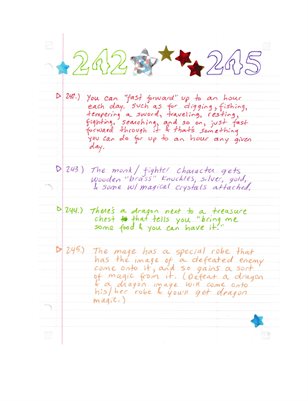 242 245
242.) You can "fast forward" up to an hour
each day. Such as for digging, fishing,
tempering a sword, traveling, resting,
fighting, searching, and so on, just fast
forward through it & that's something
you can do for up to an hour any given
day.
243.) The monk/fighter character gets
wooden "brass" knuckles, silver, gold,
& some w/magical crystals attached.
244.) There's a dragon next to a treasure
chest that tells you "bring me
some food & you can have it."
245.) The mage has a special robe that
has the image of a defeated enemy
come onto it, and so gains a sort
of magic from it. (Defeat a dragon
& a dragon image will come onto
his/her robe & you'll get dragon
magic.)